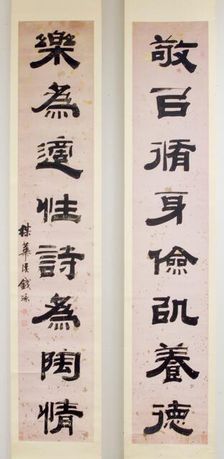 敬㠯脩身儉以養德
樂為適性詩為陶情
楳華溪錢泳